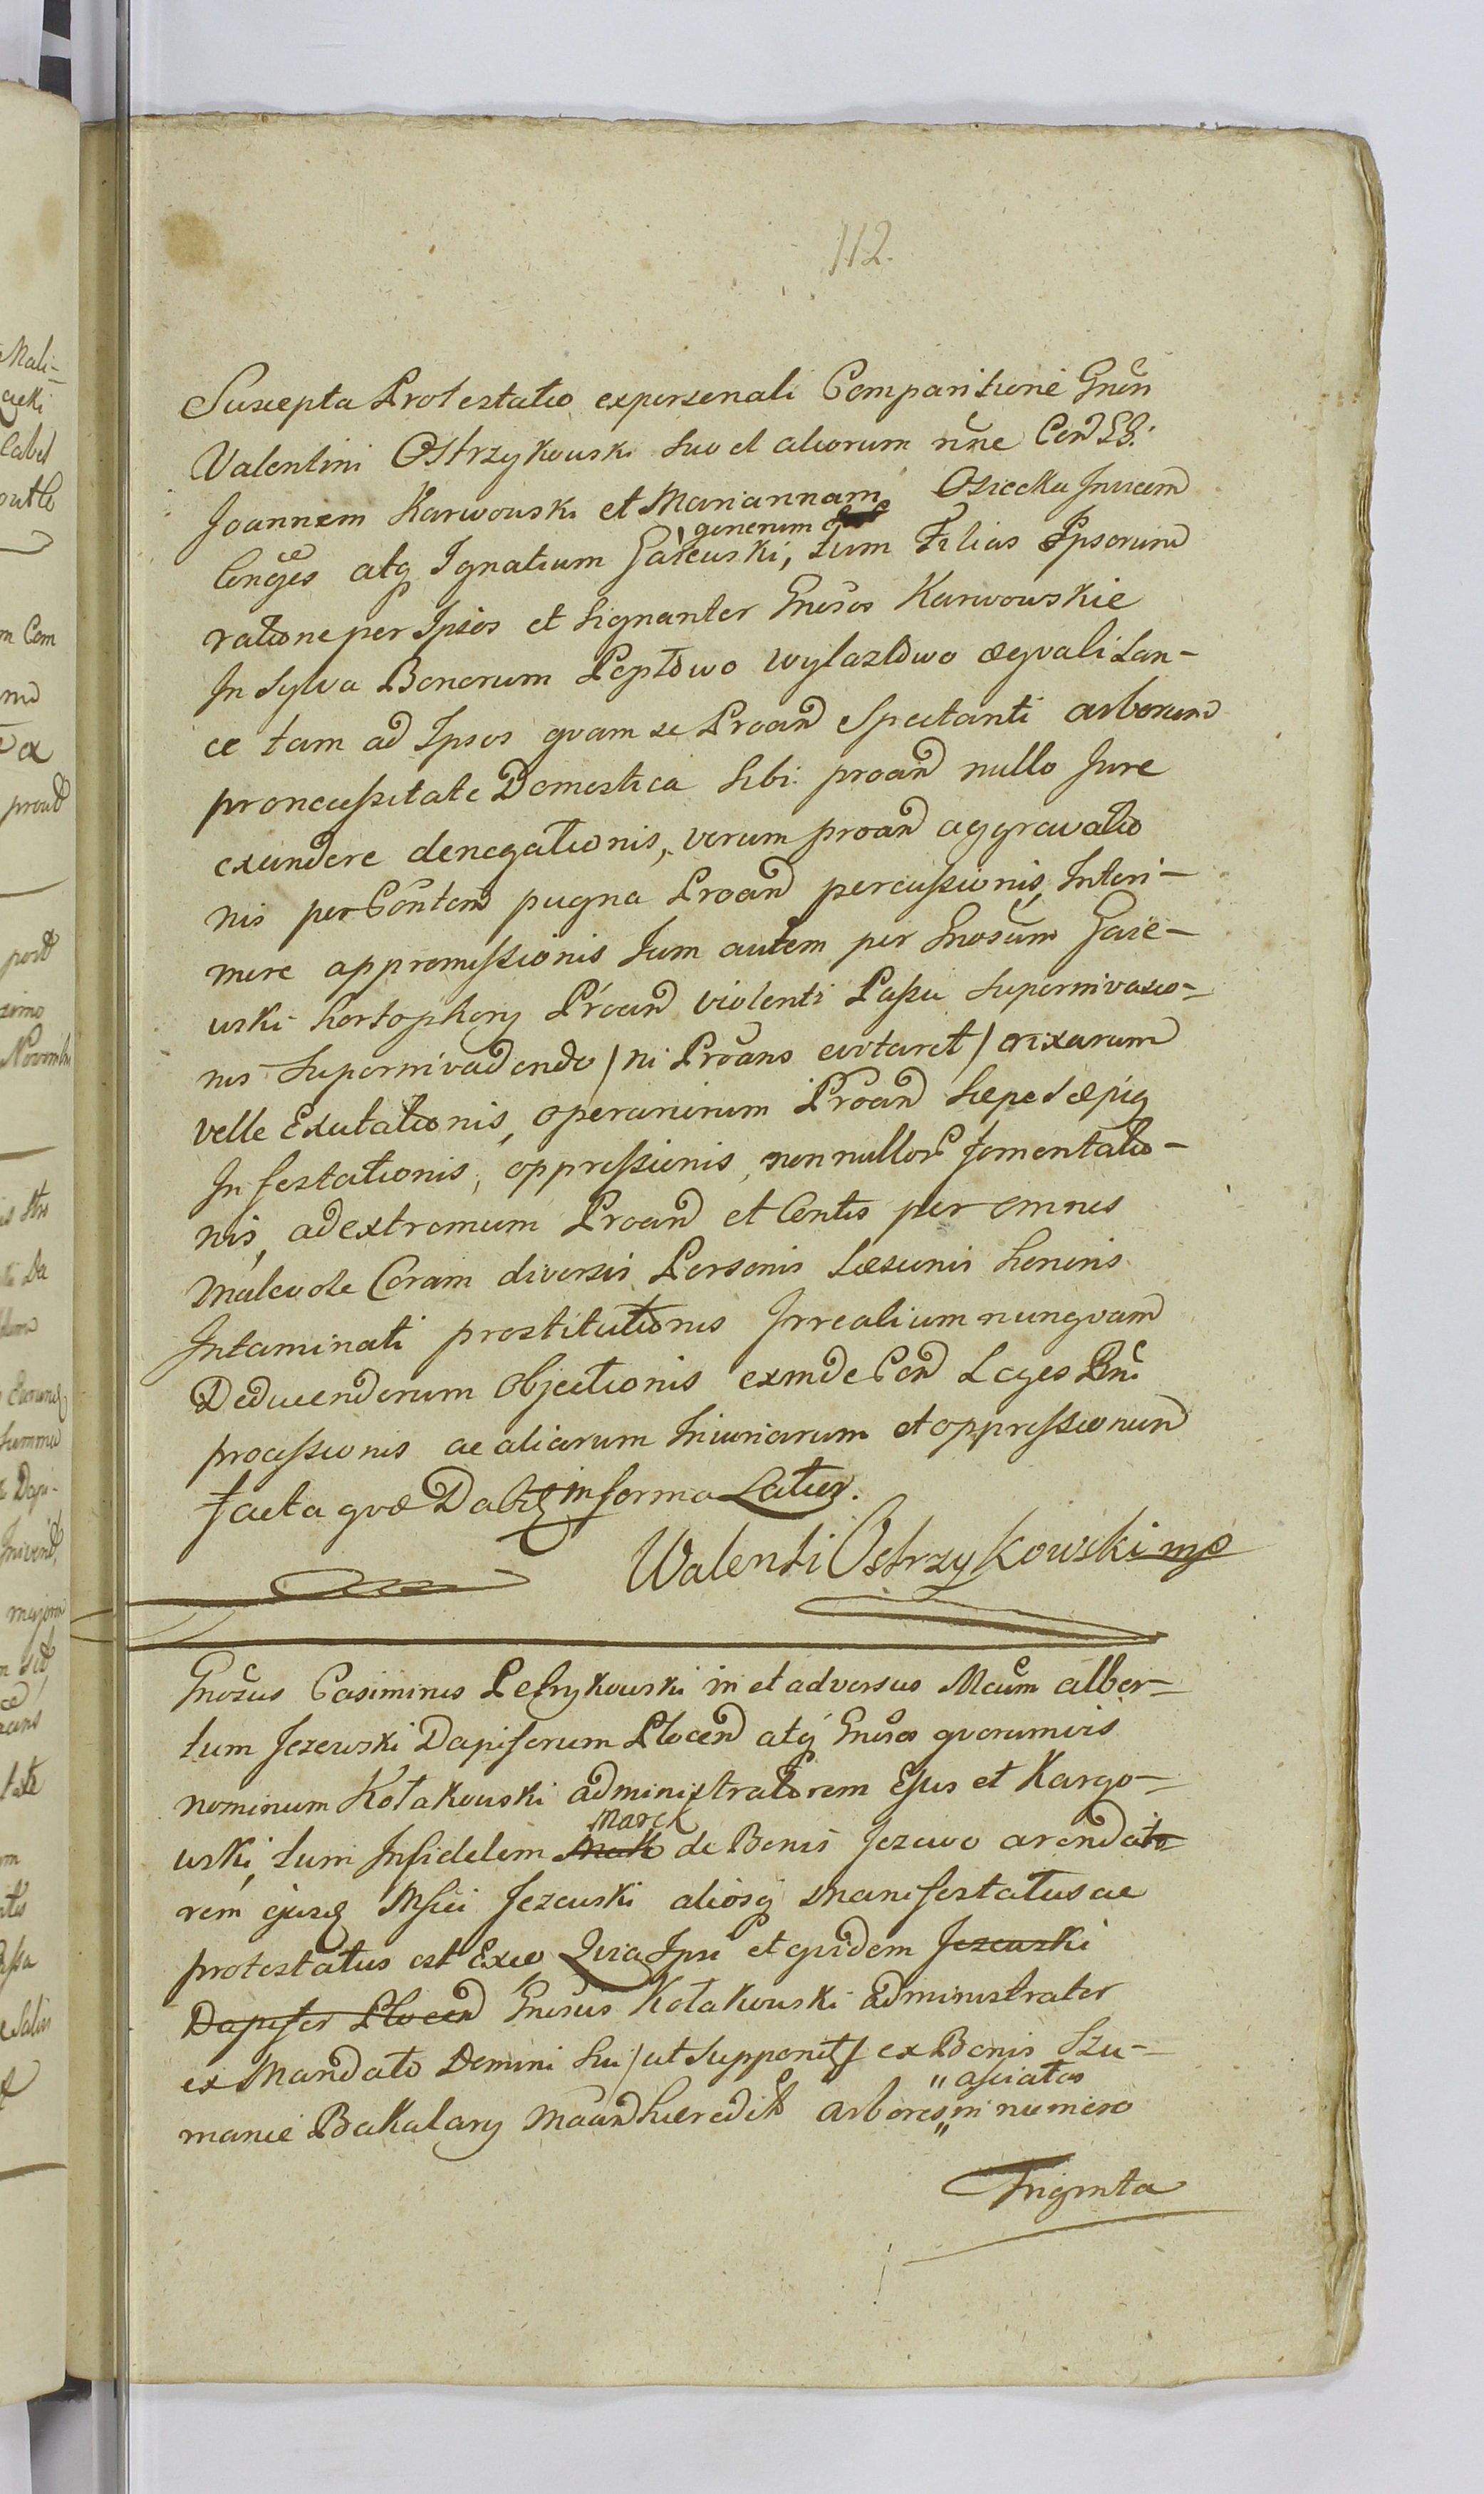 112.
Suscepta Protestatio ex personali Comparitione Gnēn
Valentini Ostrzykowski suo et aliorum nn̄e Con͠ GG.
Joannem Karwowski et Mariannam Osiecka Invicem
generum
Conges atq Ignatium Garewski, tum Filias Ipsorum
ratione per Ipsos et signanter Gnosos Karwowskie
In Sylva Bonorum Peptowo Wylaztowo æqvali Lan-
ce tam ad Ipsos qvam se Proan͠ Spectanti arborum
pro necessitate Domestica sibi proan͠ nullo Jure
exeindere denegationis, verum proan͠ aggravatio
nis per Contem͠ pugna Proan͠ percussionis, Interi-
mere appromissionis tum autem per Gnosum Gare-
wski hortophory Proan͠ violenti Passu supernivasio-
nis supernivadendo / ni Proans evitaret / rixarum
velle Exutationis, operariorum Proan͠ sæpe sæpiq
Infestationis, oppressionis, non nullor fomentatio-
nis, ad extremum Proan͠ et Contis per omnes
malevole Coram diversis Personis Læsionis honoris
Intaminati prostitutionis Irrealium nunqvam
Deducendorum objectionis exinde Con͠ Leges Pni
processionis ac aliarum Iniuriarum et oppressionum
facta qvæ Dabit in forma Latius.
Walenti Ostrzykowski mp
Gnosus Casimirus Petrykowski in et adversus Mcum alber-
tum Jezewski Dapiferum Plocen͠ atq Gnosos qvorumvis
nominum Kołakowski administratorem Ejus et Kargo-
Marek
wski, tum Infidelem de Bonis Jezewo arendato
rem ejusq Msici Jezewski aliosq manifestatus ac
protestatus est Exeo Qvia Ipsi et qvidem Jezewski
Dapifer Plocen͠ Gnosus Kołakowski administrator
ex Mandato Domini sui / ut supponit / ex Bonis Szu-
" asciatas
manie Bakalary Maan͠ hæredit͠ arbores " in numero
Triginta